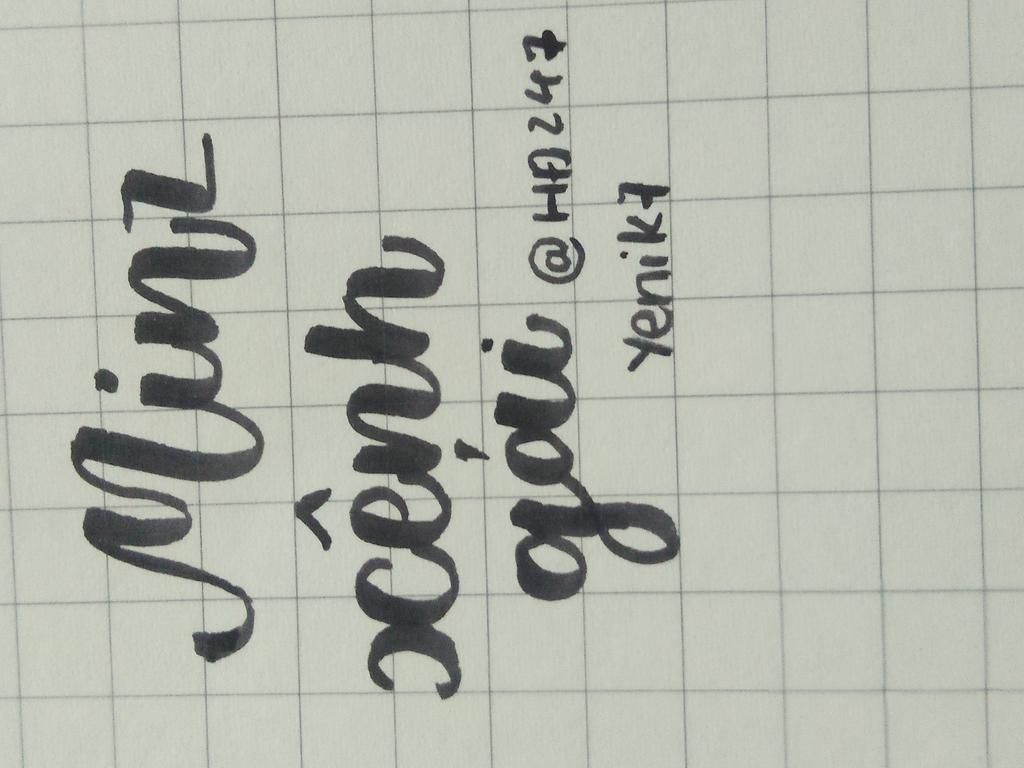 Minz
xênh
gái @HĐ247
Yenik7